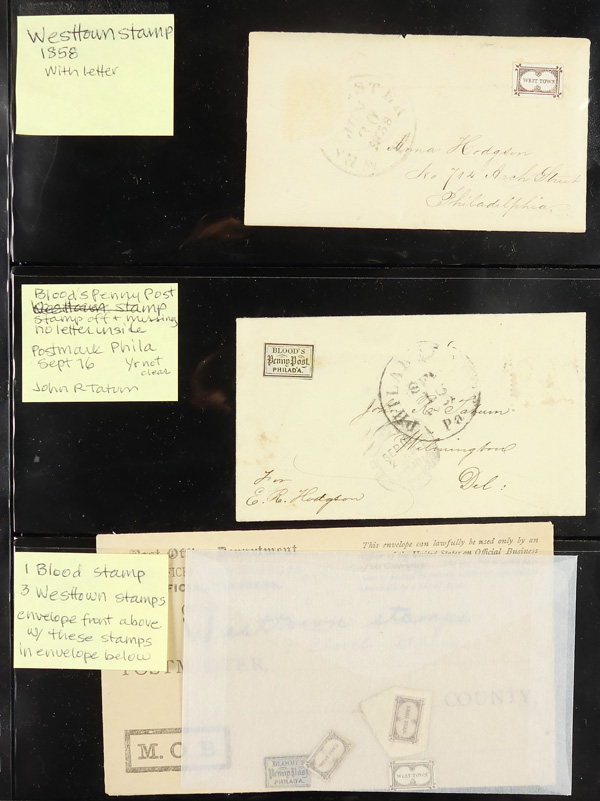 Westtown stamp
1858
With letter
WEST TOWN
1858
Anna Hodgson
No 704 Arch Street
Philadelphia
Blood's Penny Post
Westtown stamp
stamp off + missing
no letter inside
Postmark Phila
Sept 16 Yr not
clear
John R Tatum
BLOOD'S
Penny Post.
PHILAD'A
Pa
Jno. R. Tatum
Wilmington
Del:
From
E. R. Hodgson
1 Blood stamp
3 Westtown stamps
envelope front above
w/ these stamps
in envelope below
Post Office Department
This envelope can lawfully be used only by an
United States on Official Business
Westtown stamps
POSTMASTER,
COUNTY
M. O. B
WEST TOWN
WEST TOWN
BLOOD'S
Penny Post
PHILAD'A
WEST TOWN